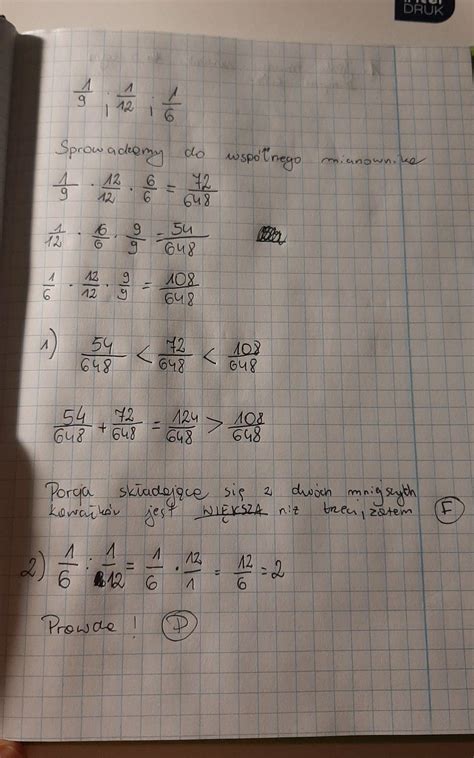 DRUK
1/9 ; 1/12 ; 1/6
Sprowadzamy do wspólnego mianownika
1/9 · 12/12 · 6/6 = 72/648
1/12 · 6/6 · 9/9 = 54/648
1/6 · 12/12 · 9/9 = 108/648
1) 54/648 < 72/648 < 108/648
54/648 + 72/648 = 124/648 > 108/648
Porcja składające się z dwóch mniejszych
kawałków jest WIĘKSZA niż trzeci, zatem F
2) 1/6 : 1/12 = 1/6 · 12/1 = 12/6 = 2
Prawda ! P